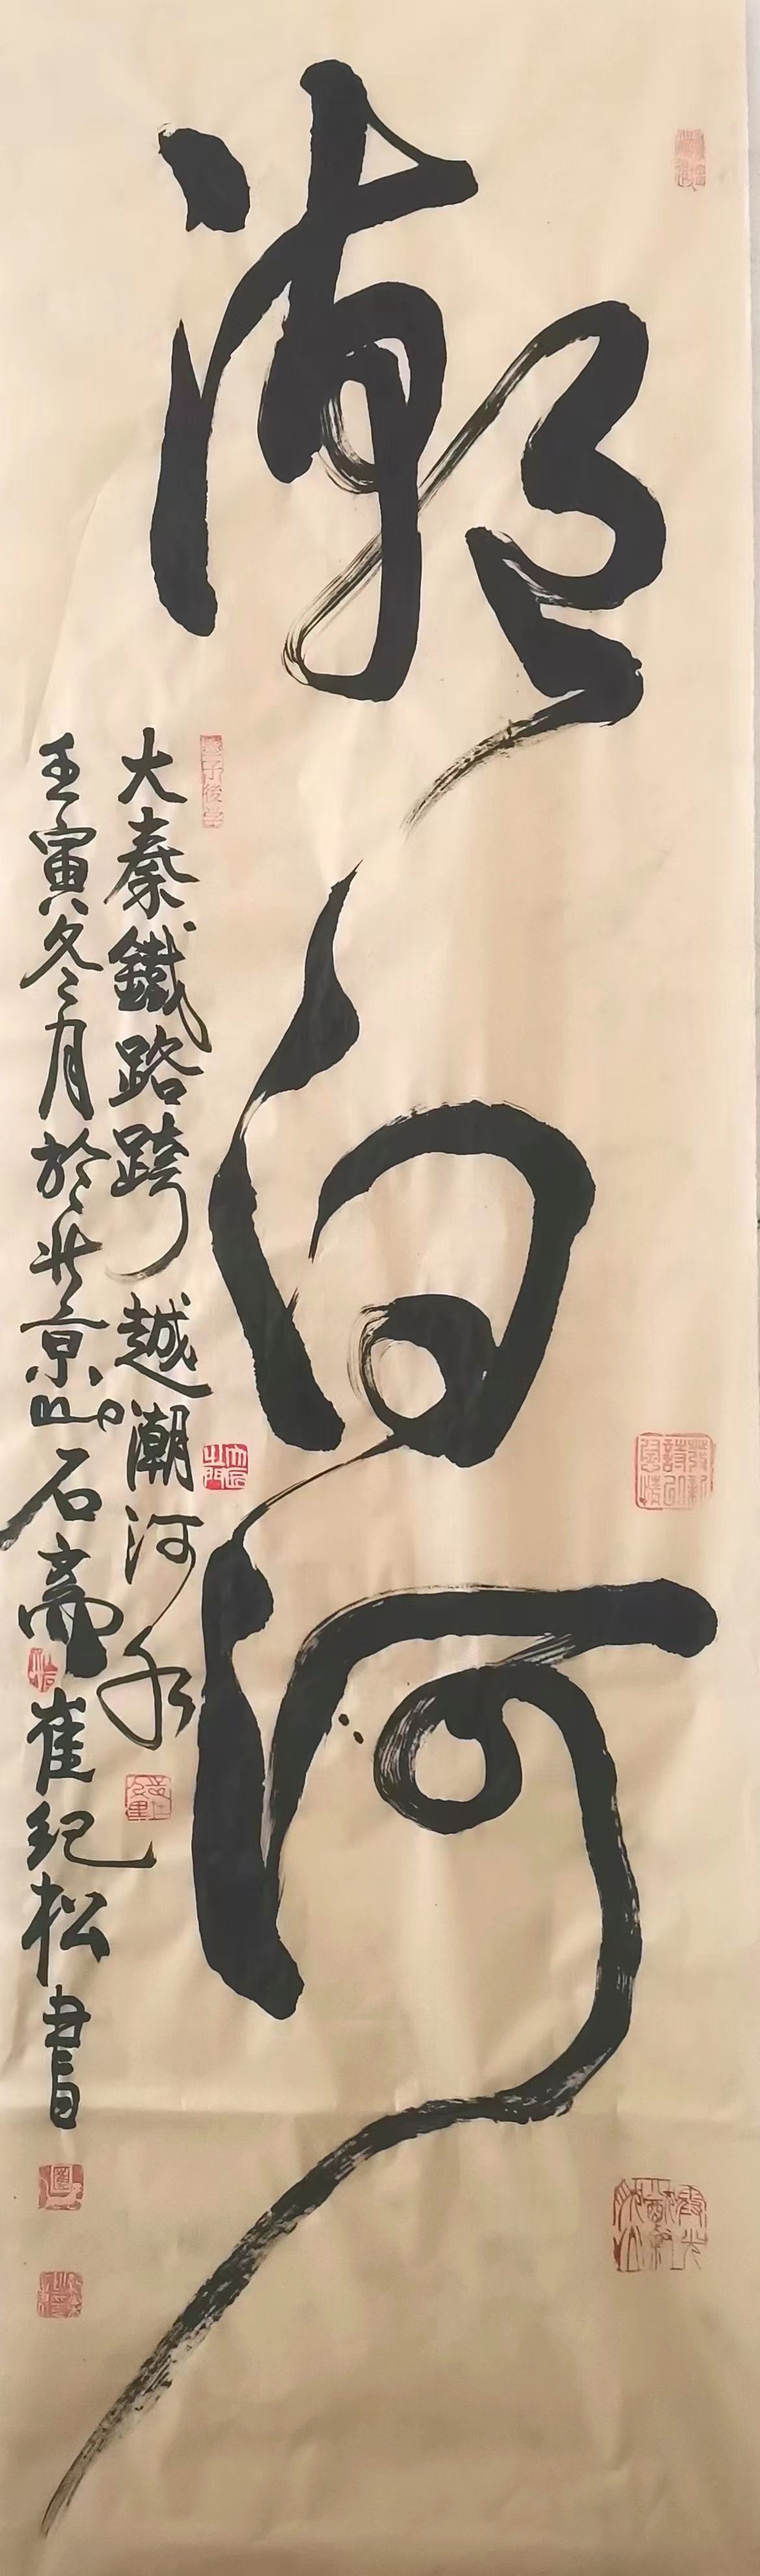 潮白河
大秦鐵路跨越潮河水
壬寅冬月於北京
石齋崔紀松書